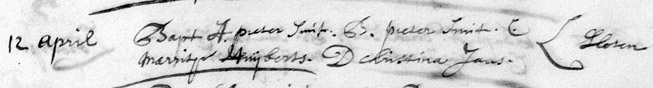 12 april Bapt A. pieter Smit. B. pieter Smit. C
marritje Huijberts. D christina Jans.